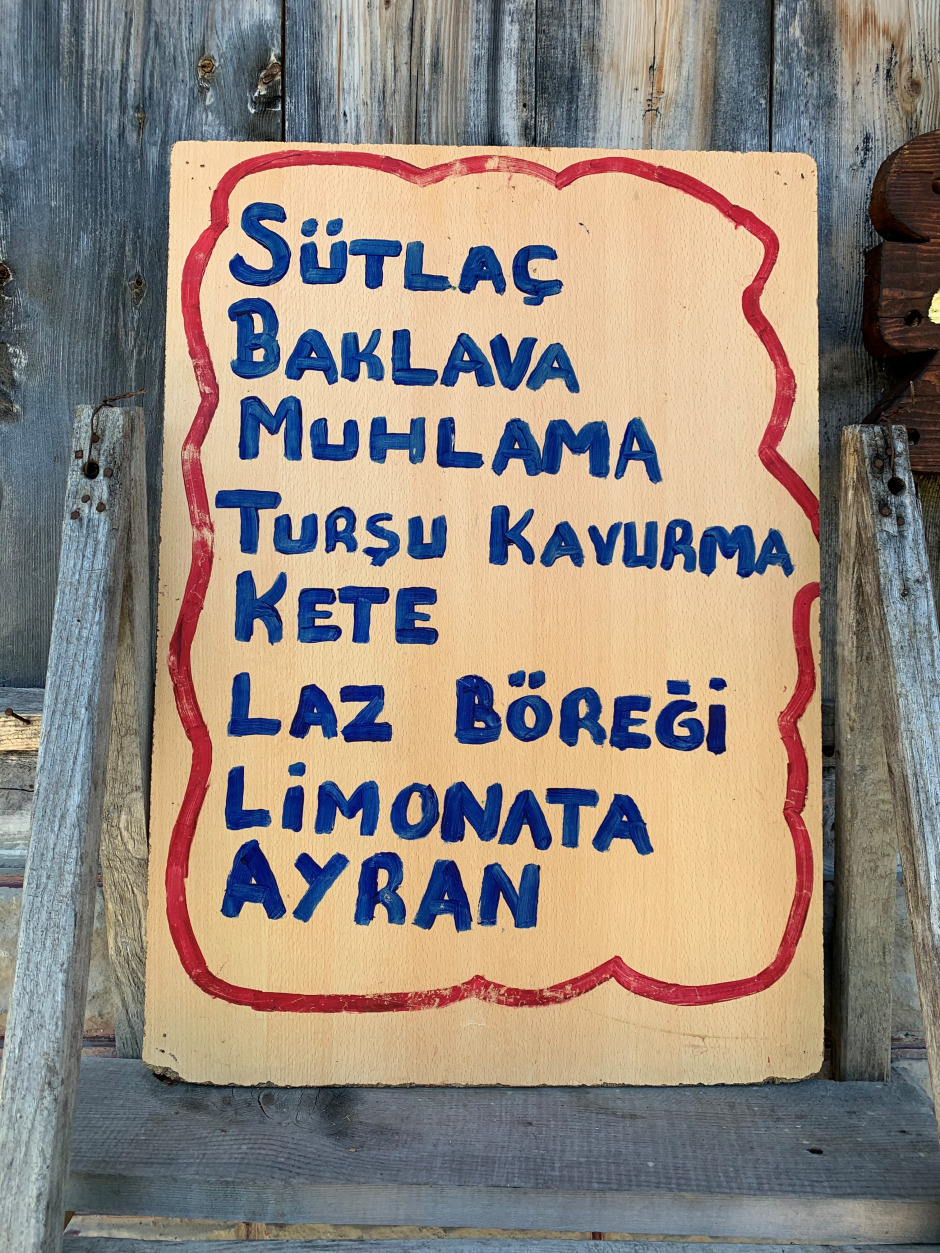 SÜTLAÇ
BAKLAVA
MUHLAMA
TURŞU KAVURMA
KETE
LAZ BÖREĞİ
LİMONATA
AYRAN